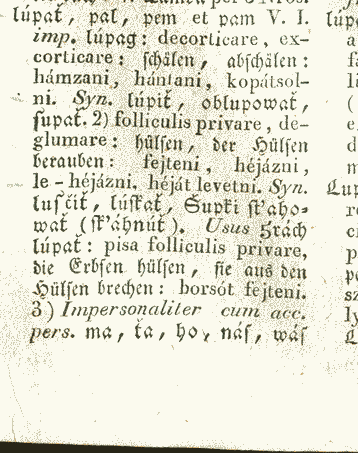 lúpať, pal, pem et pam V. I.
imp. lúpag: decorticare, ex-
corticare: schälen, abschälen:
hámzani, hántani, kopátsol-
ni. Syn. lúpiť, oblupowať,
supať. 2) folliculis privare, de-
glumare: hülsen, der Hülsen
berauben: fejteni, héjázni,
le-héjázni, héját levetni. Syn.
lusčiť, lúskať, Supki sk'aho-
wať (sk'áhnúť). Usus hrách
lúpať: pisa folliculis privare,
die Erbsen hülsen, sie aus den
Hülsen brechen: borsót fejteni.
3) Impersonaliter cum acc.
pers. ma, ťa, ho, nás, wás